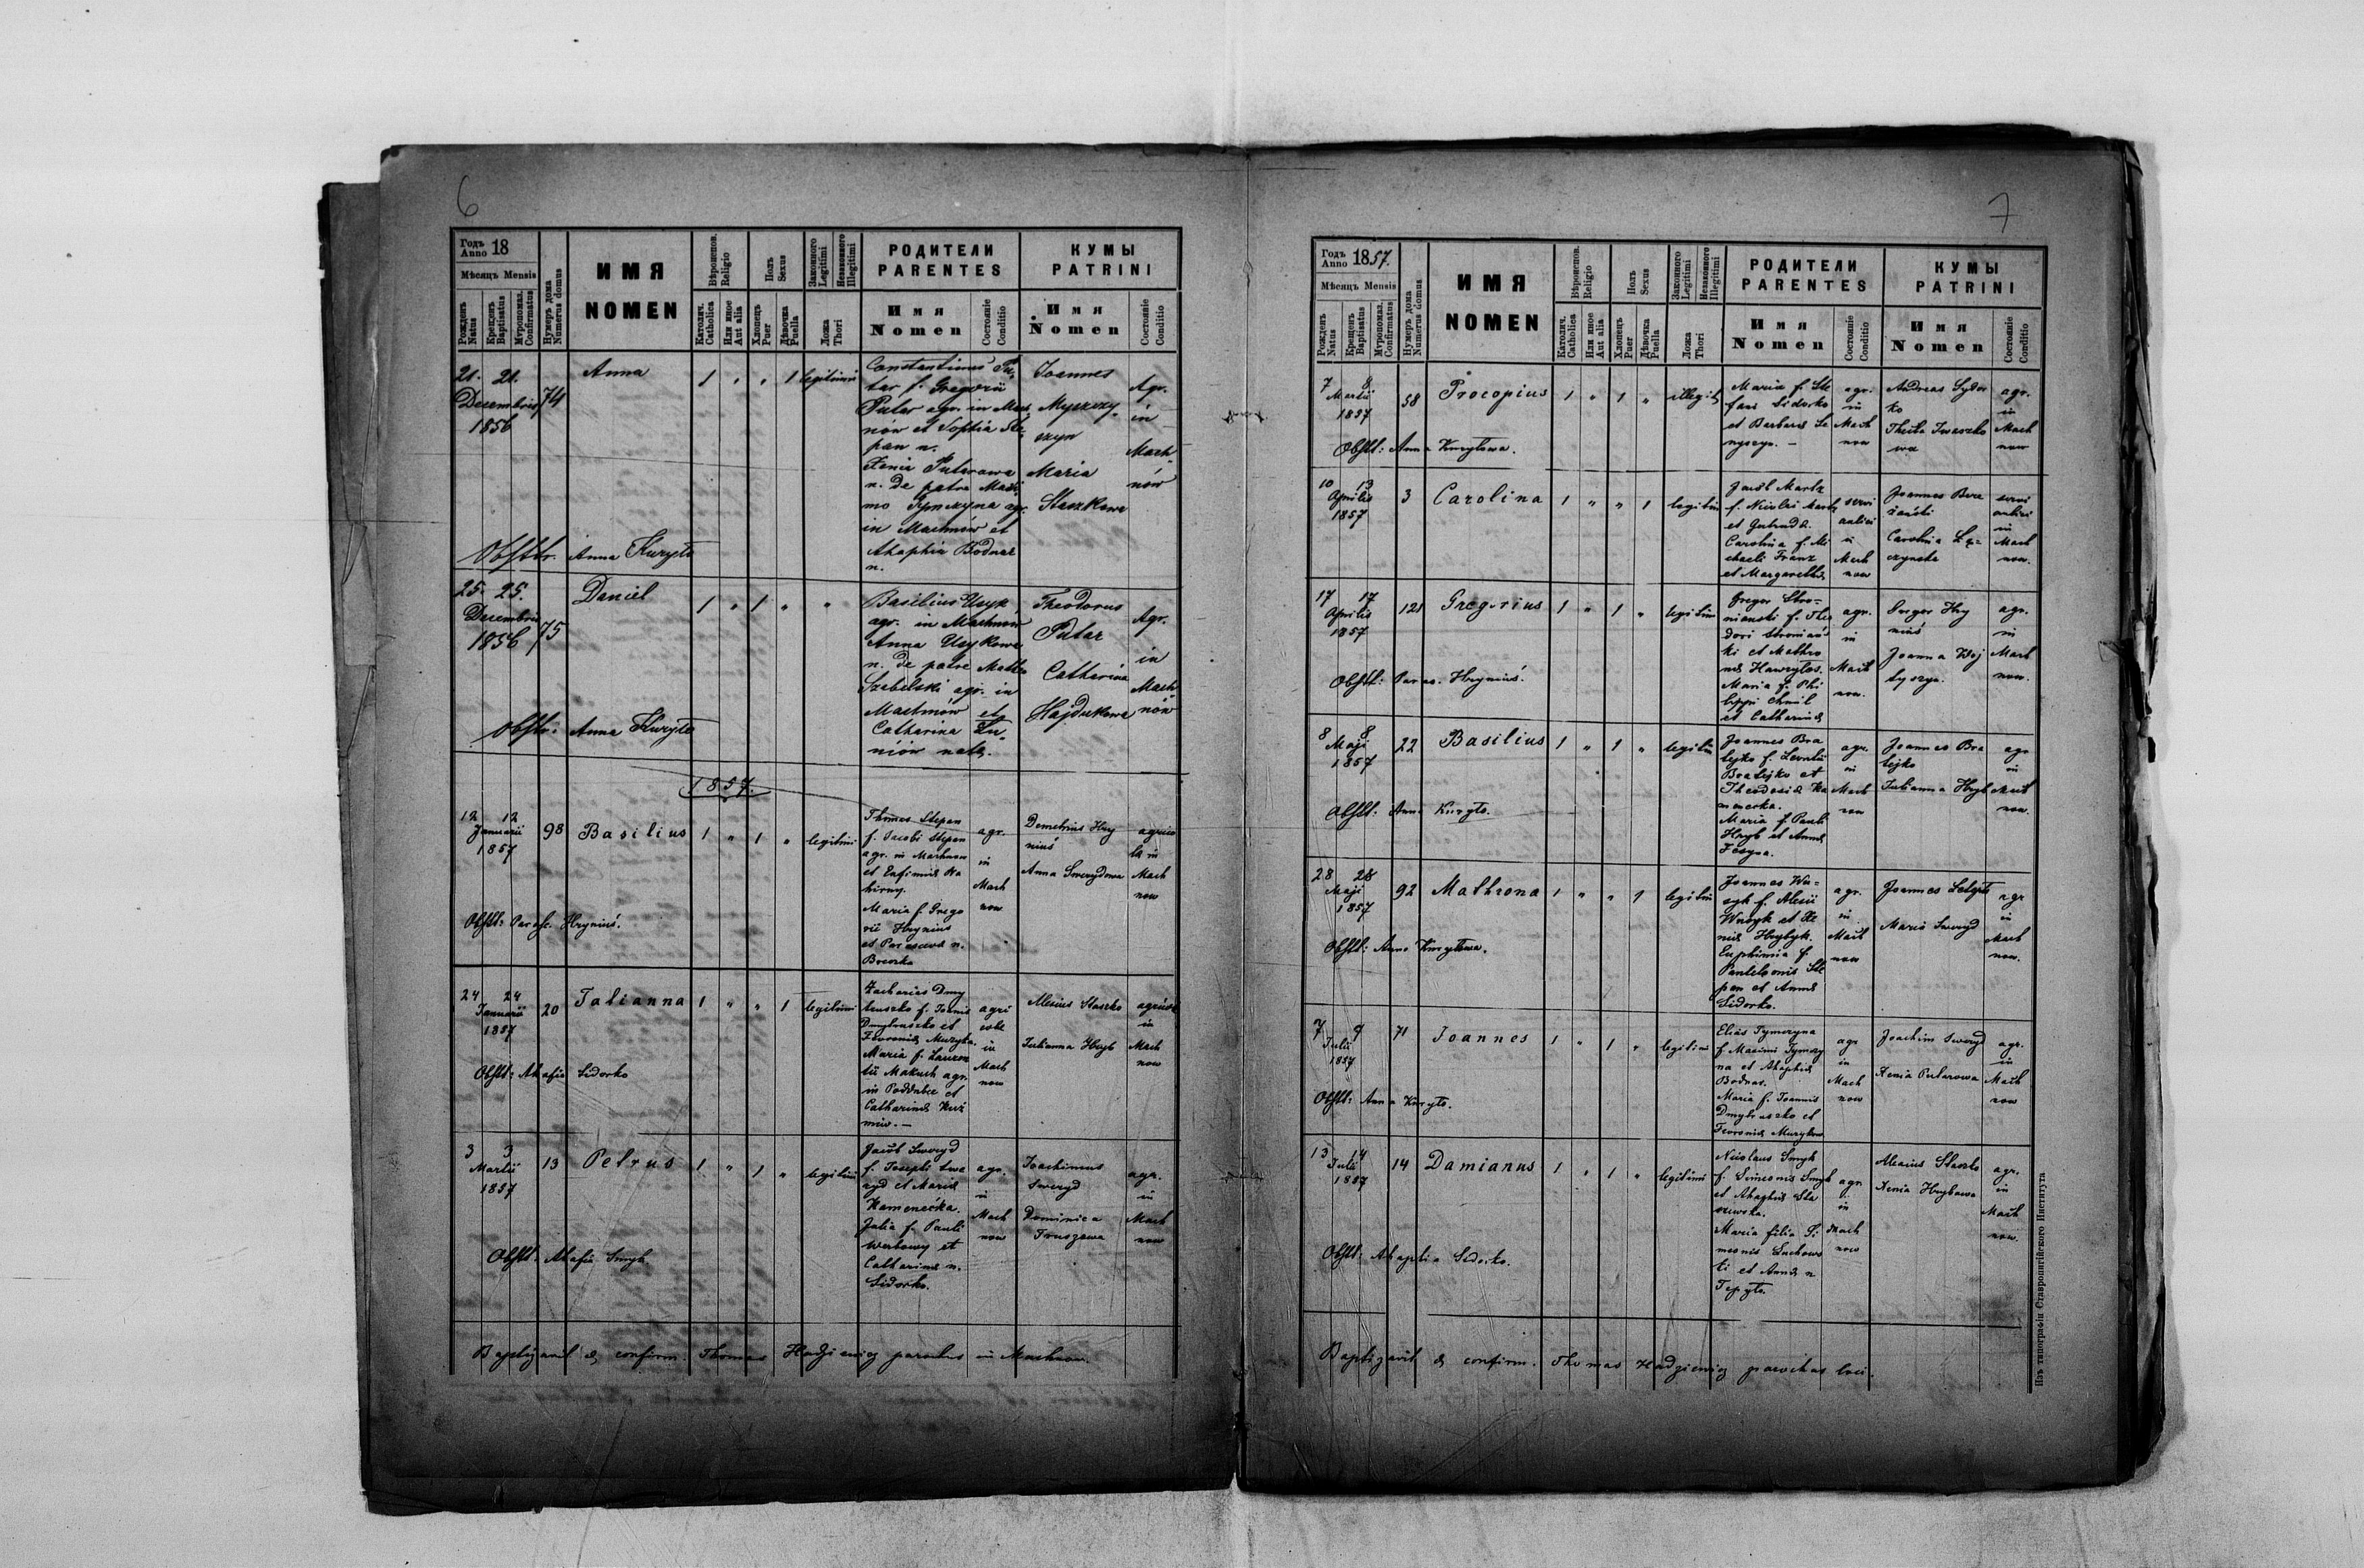 6
Годъ 18
Anno
Мѣсяцъ Mensis
Рожденъ Natus
Крещенъ Baptisatus
Мѵропомаз. Confirmatus
Нумеръ дома Numerus domus
ИМЯ
NOMEN
Вѣроиспов. Religio
Католич. Catholica
Или иное Aut alia
Полъ Sexus
Хлопецъ Puer
Дѣвочка Puella
Законного Legitimi
Незаконного Illegitimi
Ложа Thori
РОДИТЕЛИ
PARENTES
Имя
Nomen
Состояніе Conditio
КУМЫ
PATRINI
Имя
Nomen
Состояніе Conditio
21. 21.
Decembris
1856
74
Anna
1 " " 1 legitimi
Constantinus Pu-
tar f. Gregorii
Putar agr. in Mach
nów et Sophia Ste
pan n.
Xenia Putarowa
n. de patre Maxi
mo Tymczyna agr.
in Machnów et
Ahaphia Bodnar
n.
Joannes
Myszczy-
szyn
Maria
Staszkowa
Agr.
in
Mach
nów
Obsttr. Anna Kuryło
25. 25.
Decembris
1856
75
Daniel
1 " 1 " "
Basilius Usyk
agr. in Machnow
Anna Usykowa
n. de patre Mattheo
Szebelski agr. in
Machnów et
Catharina
niów nata.
Theodorus
Putar
Catharina
Hajdukowa
Agr.
in
Mach
nów
Obstr: Anna Kuryło
1857.
12 12
Januarii
1857
98
Basilius
1 " 1 " legitimi
Thomas Stepan
f. Jacobi Stepan
agr. in Machnow
et Eufimia
Maria f. Grego
rii Hrynius
et Parasceva n.
agr.
in
Mach
now
Demetrius Hry
niuś
Anna Swerydowa
agrico
la in
Mach
now
Obstt: Parasc. Hryniuś.
24 24
Januarii
1857
20
Julianna
1 " " 1 legitimi
Zacharias Dmy
truszko f. Joannis
Dmytruszko et
Fevronia Muzyka.
Maria f. Lauren
tii Makuch agr.
in Poddubce et
Catharina
agri
cola
in
Mach
now
Alexius Staszko
Julianna Hryb
agricola
in
Mach
now
Obstt: Ahafia Sidorko
3 3
Martii
1857
13
Petrus
1 " 1 " legitimi
Jacob Sweryd
f. Josephi Swe
ryd et Maria
Kamenećka.
Julia f. Pauli
Werbowy et
Catharina n.
Sidorko.
agr.
in
Mach
now
Joachimus
Sweryd
Dominica
agr.
in
Mach
now
Obstt: Ahafia Smyk
Baptizavit & confirm. Thomas Hadziewicz parochus in Machnow.
7
Годъ 1857.
Anno
Мѣсяцъ Mensis
Рожденъ Natus
Крещенъ Baptisatus
Мѵропомаз. Confirmatus
Нумеръ дома Numerus domus
ИМЯ
NOMEN
Вѣроиспов. Religio
Католич. Catholica
Или иное Aut alia
Полъ Sexus
Хлопецъ Puer
Дѣвочка Puella
Законного Legitimi
Незаконного Illegitimi
Ложа Thori
РОДИТЕЛИ
PARENTES
Имя
Nomen
Состояніе Conditio
КУМЫ
PATRINI
Имя
Nomen
Состояніе Conditio
7 8
Martii
1857
58
Procopius
1 " 1 " illegit
Maria f. Ste
fani Sidorko
et Barbara
agr.
in
Mach
now
Andreas Sydor
ko
Thecla Iwaszko
wa
agr.
in
Mach
now
Obstt: Anna Kuryłowa.
10 13
Aprilis
1857
3
Carolina
1 " " 1 legitim
f. Nicolai
et Gertruda.
Carolina f. Mi
chaeli Franz
et Margaretha
servi
aulici
in
Mach
now
Joannes
Carolina
czynska
servi
aulici
in
Mach
now.
17 17
Aprilis
1857
121
Gregorius
1 " 1 " legitim
Gregor Stro-
nianski f. Theo
dori Stroniańs
ki et Mathro
na Hawryłos.
Maria f. Phi
lippi Chmil
et Catharina
agr.
in
Mach
now.
Gregor Hry
niuś
Joanna Woj
tyszyn.
agr.
in
Mach
now.
Obstt: Paras. Hryniuś.
8 8
Maji
1857
22
Basilius
1 " 1 " legitim
Joannes Bra
tejko f. Leontii
Bratejko et
Theodosia Ka
menecka.
Maria f. Pauli
Hryb et Anna
agr.
in
Mach
now
Joannes Bra
tejko
Julianna Hryb
agr
in
Mach
now.
Obstt: Anna Kuryło.
28 28
Maji
1857
92
Mathrona
1 " " 1 legitim
Joannes Wu-
zyk f. Alexii
Wuzyk et Xe
nia
Euphimia f.
Panteleomis Ste
pan et Anna
Sidorko.
agr.
in
Mach
now
Joannes
Maria Sweryd
agr
in
Mach
now.
Obstt: Anna Kuryłowa.
7 9
Julii
1857
71
Joannes
1 " 1 " legitimi
Elias Tymczyna
f. Maximi Tymczy
na et Ahaphia
Bodnar.
Maria f. Joannis
Dmytruszko et
Fevronia
agr
in
Mach
now
Joachim Sweryd
Xenia Putarowa
agr.
in
Mach
now
Obstt: Anna Kuryło.
13 14
Julii
1857
14
Damianus
1 " 1 " legitimi
Nicolaus Smyk
f. Simeonis Smyk
et Ahaphia
Maria filia Si
meonis
ki et Anna n
agr
in
Mach
now
Alexius Staszko
Xenia Hrybowa
agr.
in
Mach
now.
Obstt: Ahaphia Sidorko.
Baptizavit & confirm. Thomas Hadziewicz parochus loci.
Изъ типографіи Ставропигійского Института